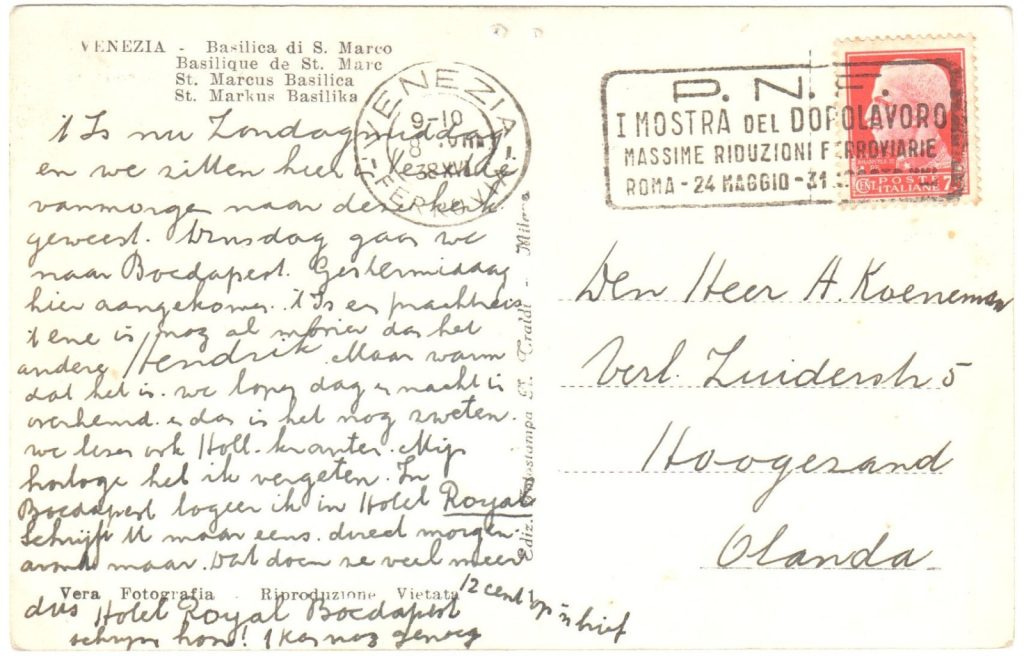 VENEZIA - Basilica di S. Marco
Basilique de St. Marc
St. Marcus Basilica
St. Markus Basilika
VENEZIA
9-10
8
38 XVI
FERROVIA
P. N. F.
I MOSTRA DEL DOPOLAVORO
MASSIME RIDUZIONI FERROVIARIE
ROMA - 24 MAGGIO - 31
POSTE
ITALIANE
CENT. 7
't Is nu Zondagmiddag
en we zitten hier in
vanmorgen naar den kerk
geweest. Dinsdag gaan we
naar Boedapest. Gistermiddag
hier aangekomen. 't Is en prachtreis
't ene is nog al mooier dan het
andere Hendrik. Maar warm
dat het is. we lopen dag en nacht in
overhemd en dan is het nog zweten.
we lezen ook Holl. kranten. Mijn
horloge heb ik vergeten. In
Boedapest logeer ik in Hotel Royal
Schrijf U maar eens. direct morgen
avond maar. Dat doen ze veel meer
dus Hotel Royal Boedapest
12 cent op 'n brief
nog genoeg
Vera Fotografia - Riproduzione Vietata
Ediz. Fotostampa Traldi - Milano
Den Heer A. Koeneman
Verl. Zuiderstr 5
Hoogezand
Olanda.